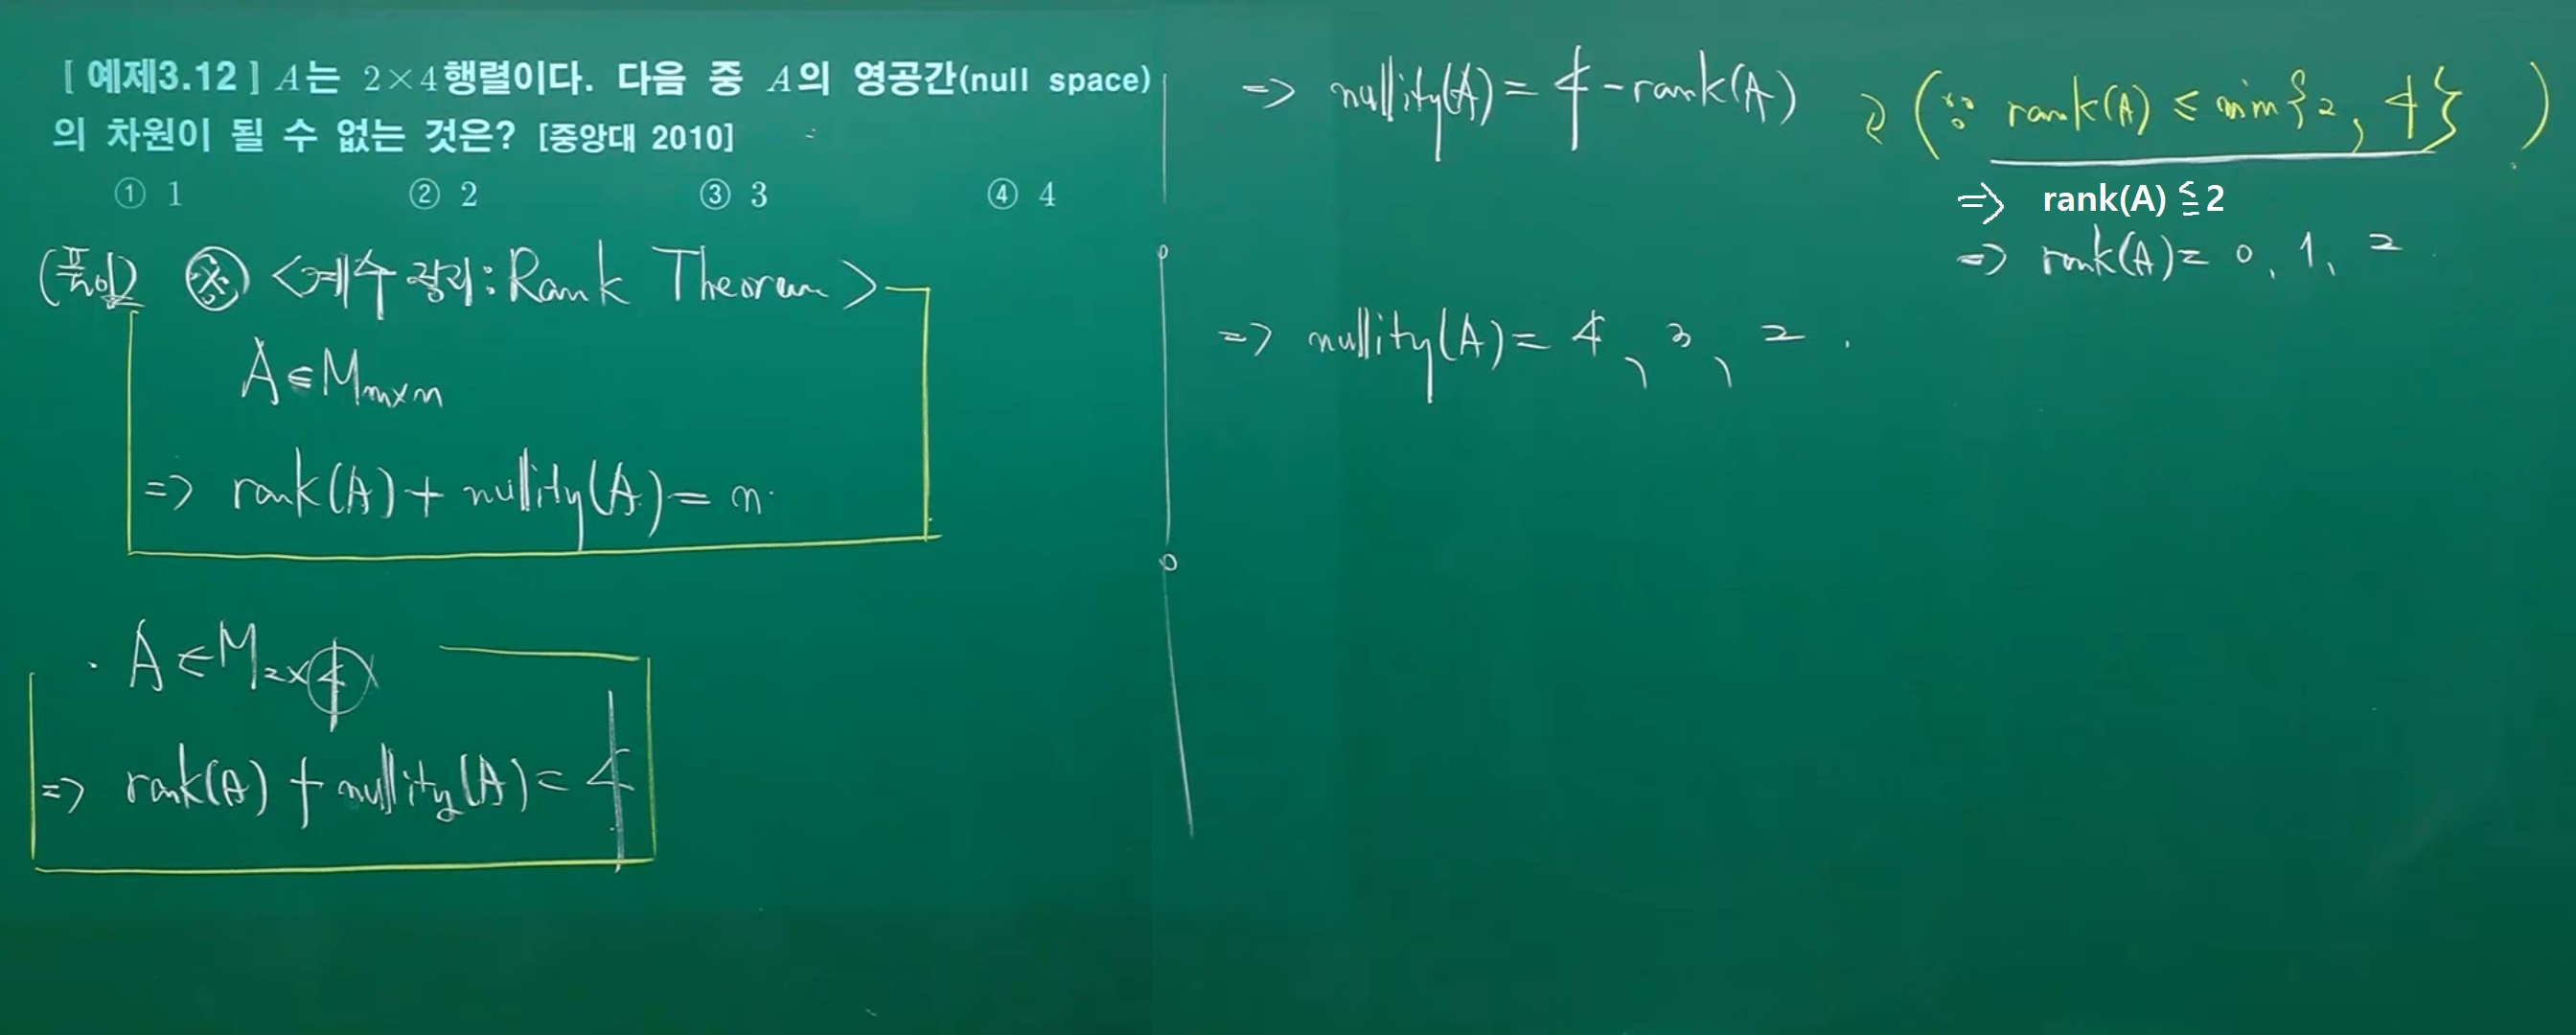 [ 예제3.12 ] A는 2×4행렬이다. 다음 중 A의 영공간(null space)
의 차원이 될 수 없는 것은? [중앙대 2010]
① 1 ② 2 ③ 3 ④ 4
(풀이) ※ <계수 정리: Rank Theorem>
A∈Mm×n
=> rank(A) + nullity(A) = n
· A∈M2×4
=> rank(A) + nullity(A) = 4
=> nullity(A) = 4 - rank(A) ≥ 2 (∵ rank(A) ≤ min{2, 4})
=> rank(A) ≦ 2
=> rank(A) = 0, 1, 2
=> nullity(A) = 4, 3, 2 .